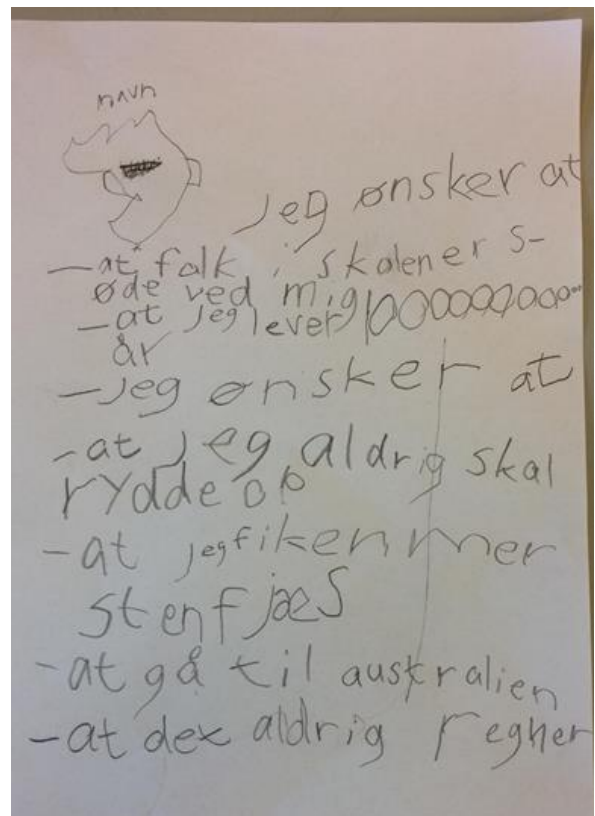 navn
jeg ønsker at
—at folk i skolen er s-
øde ved mig
—at jeg lever 1000000000
år
—jeg ønsker at
-at jeg aldrig skal
rydde op
-at jeg fik en mer
stenfjæs
-at gå til australien
-at det aldrig regner